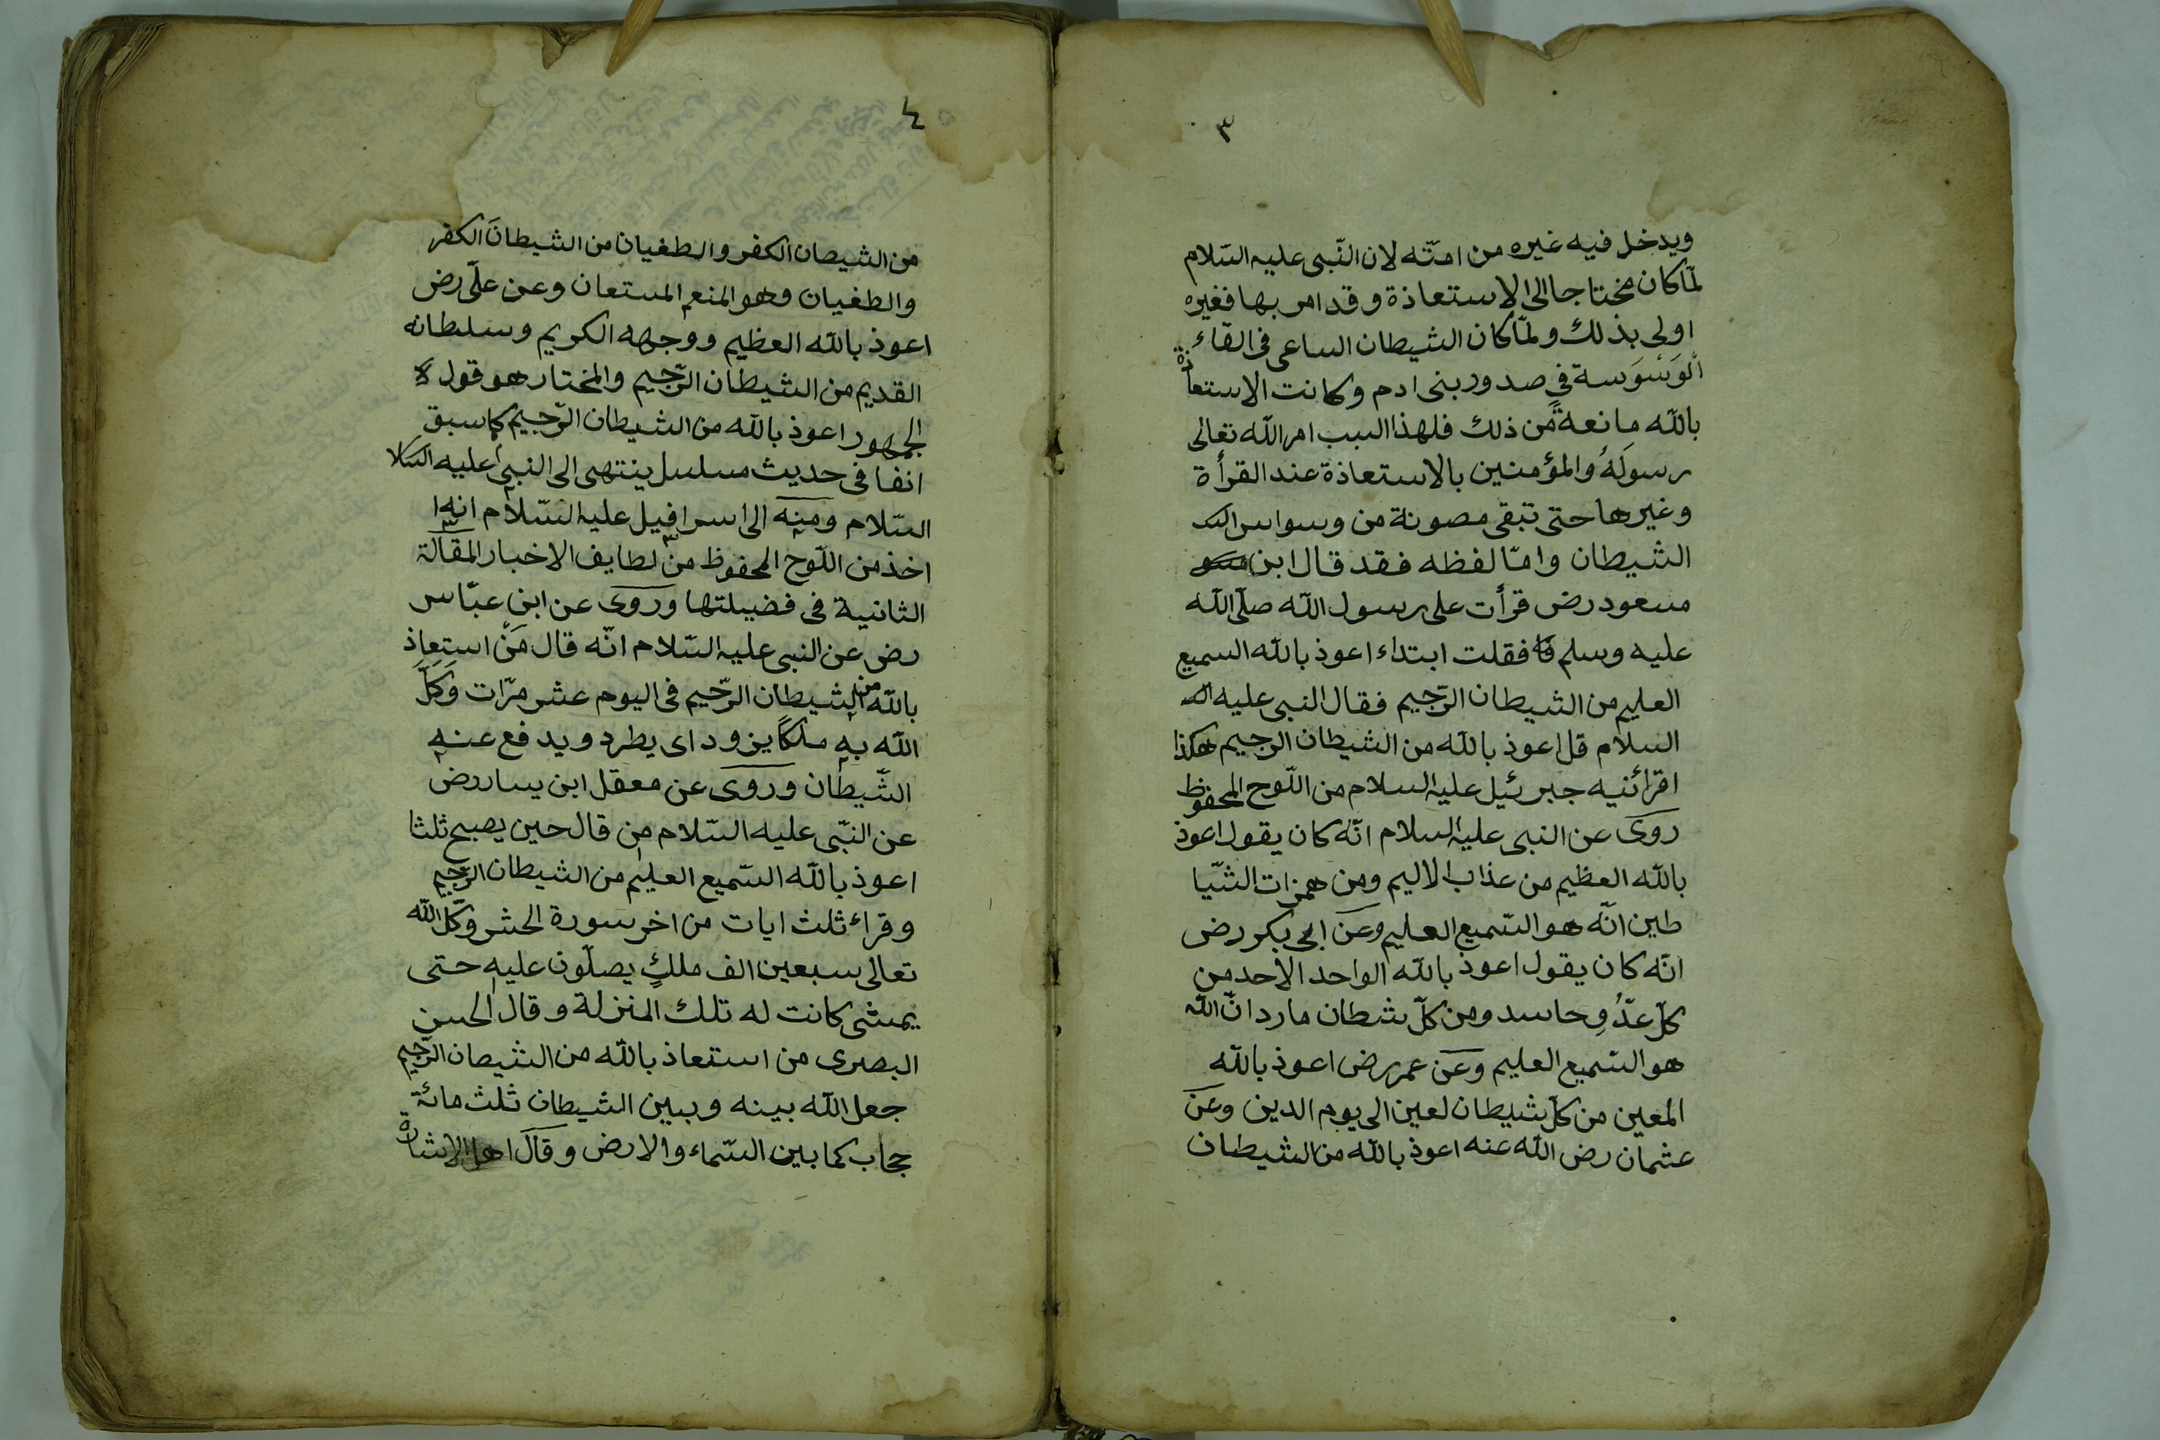 ٣
ويدخل فيه غيره من امّته لان النّبى عليه السّلام
لمّا كان محتاجا الى الاستعاذة وقد امر بها فغيره
اولى بذلك ولمّا كان الشيطان الساعى فى القاء
الْوَسْوَسة فى صدور بنى ادم وكانت الاستعاذة
بالله مانعةً من ذلك فلهذا السبب امر الله تعالى
رسولَهُ والمؤمنين بالاستعاذة عند القرأة
وغيرها حتى تبقى مصونة من وسواس الش
الشيطان وامّا لفظه فقد قال ابن مسعو
مسعود رض قرأت على رسول الله صلّى الله
عليه وسلم فقلت ابتداء اعوذ بالله السميع
العليم من الشيطان الرّجيم فقال النبى عليه
السلام قل اعوذ بالله من الشيطان الرجيم هكذا
اقرائنيه جبرئيل عليه السلام من اللّوح المحفوظ
روى عن النبى عليه السلام انّه كان يقول اعوذ
بالله العظيم من عذاب الاليم ومن همزات الشّيا
طين انّه هو السّميع العليم وعن ابى بكر رض
انّه كان يقول اعوذ بالله الواحد الاحد من
كلّ عدّوٍ وحاسد ومن كلّ شطان مارد انّ الله
هو السّميع العليم وعن عمر رض اعوذ بالله
المعين من كلّ شيطان لعين الى يوم الدين وعن
عثمان رض الله عنه اعوذ بالله من الشيطان
٤
من الشيصان الكفر والطغيان من الشيطان الكفر
والطغيان وهو المنعم المستعان وعن علّى رض
اعوذ بالله العظيم ووجهه الكريم وسلطانه
القديم من الشيطان الرّجيم والمختار هو قول
الجمهور اعوذ بالله من الشيطان الرّجيم كما سبق
انفا فى حديث مسلسل ينتهى الى النبى عليه السلا
السّلام ومنه الى اسرافيل عليه السّلام انه
اخذ من اللّوح المحفوظ من لطايف الاخبار المقالة
الثانية فى فضيلتها وروى عن ابن عبّاس
رض عن النبى عليه السّلام انّه قال مَنْ استعاذ
بالله من الشيطان الرّجيم فى اليوم عشر مرّات وَكَّلَ
الله به ملكاً يزوداى يطرد ويدفع عنه
الشّيطان وروى عن معقل ابن يسار رض
عن النّبى عليه السّلام من قال حين يصبح ثلثا
اعوذ بالله السّميع العليم من الشيطان الرّجيم
وقراء ثلث ايات من اخر سورة الحشر وكّل الله
تعالى سبعين الف ملكٍ يصلّون عليه حتى
يمشى كانت له تلك المنزلة وقال الحسن
البصرى من استعاذ بالله من الشيصان الرّجيم
جعل الله بينه وبين الشيطان ثلث مائة
حجاب كما بين السّماء والارض وقال اهل الاشارة